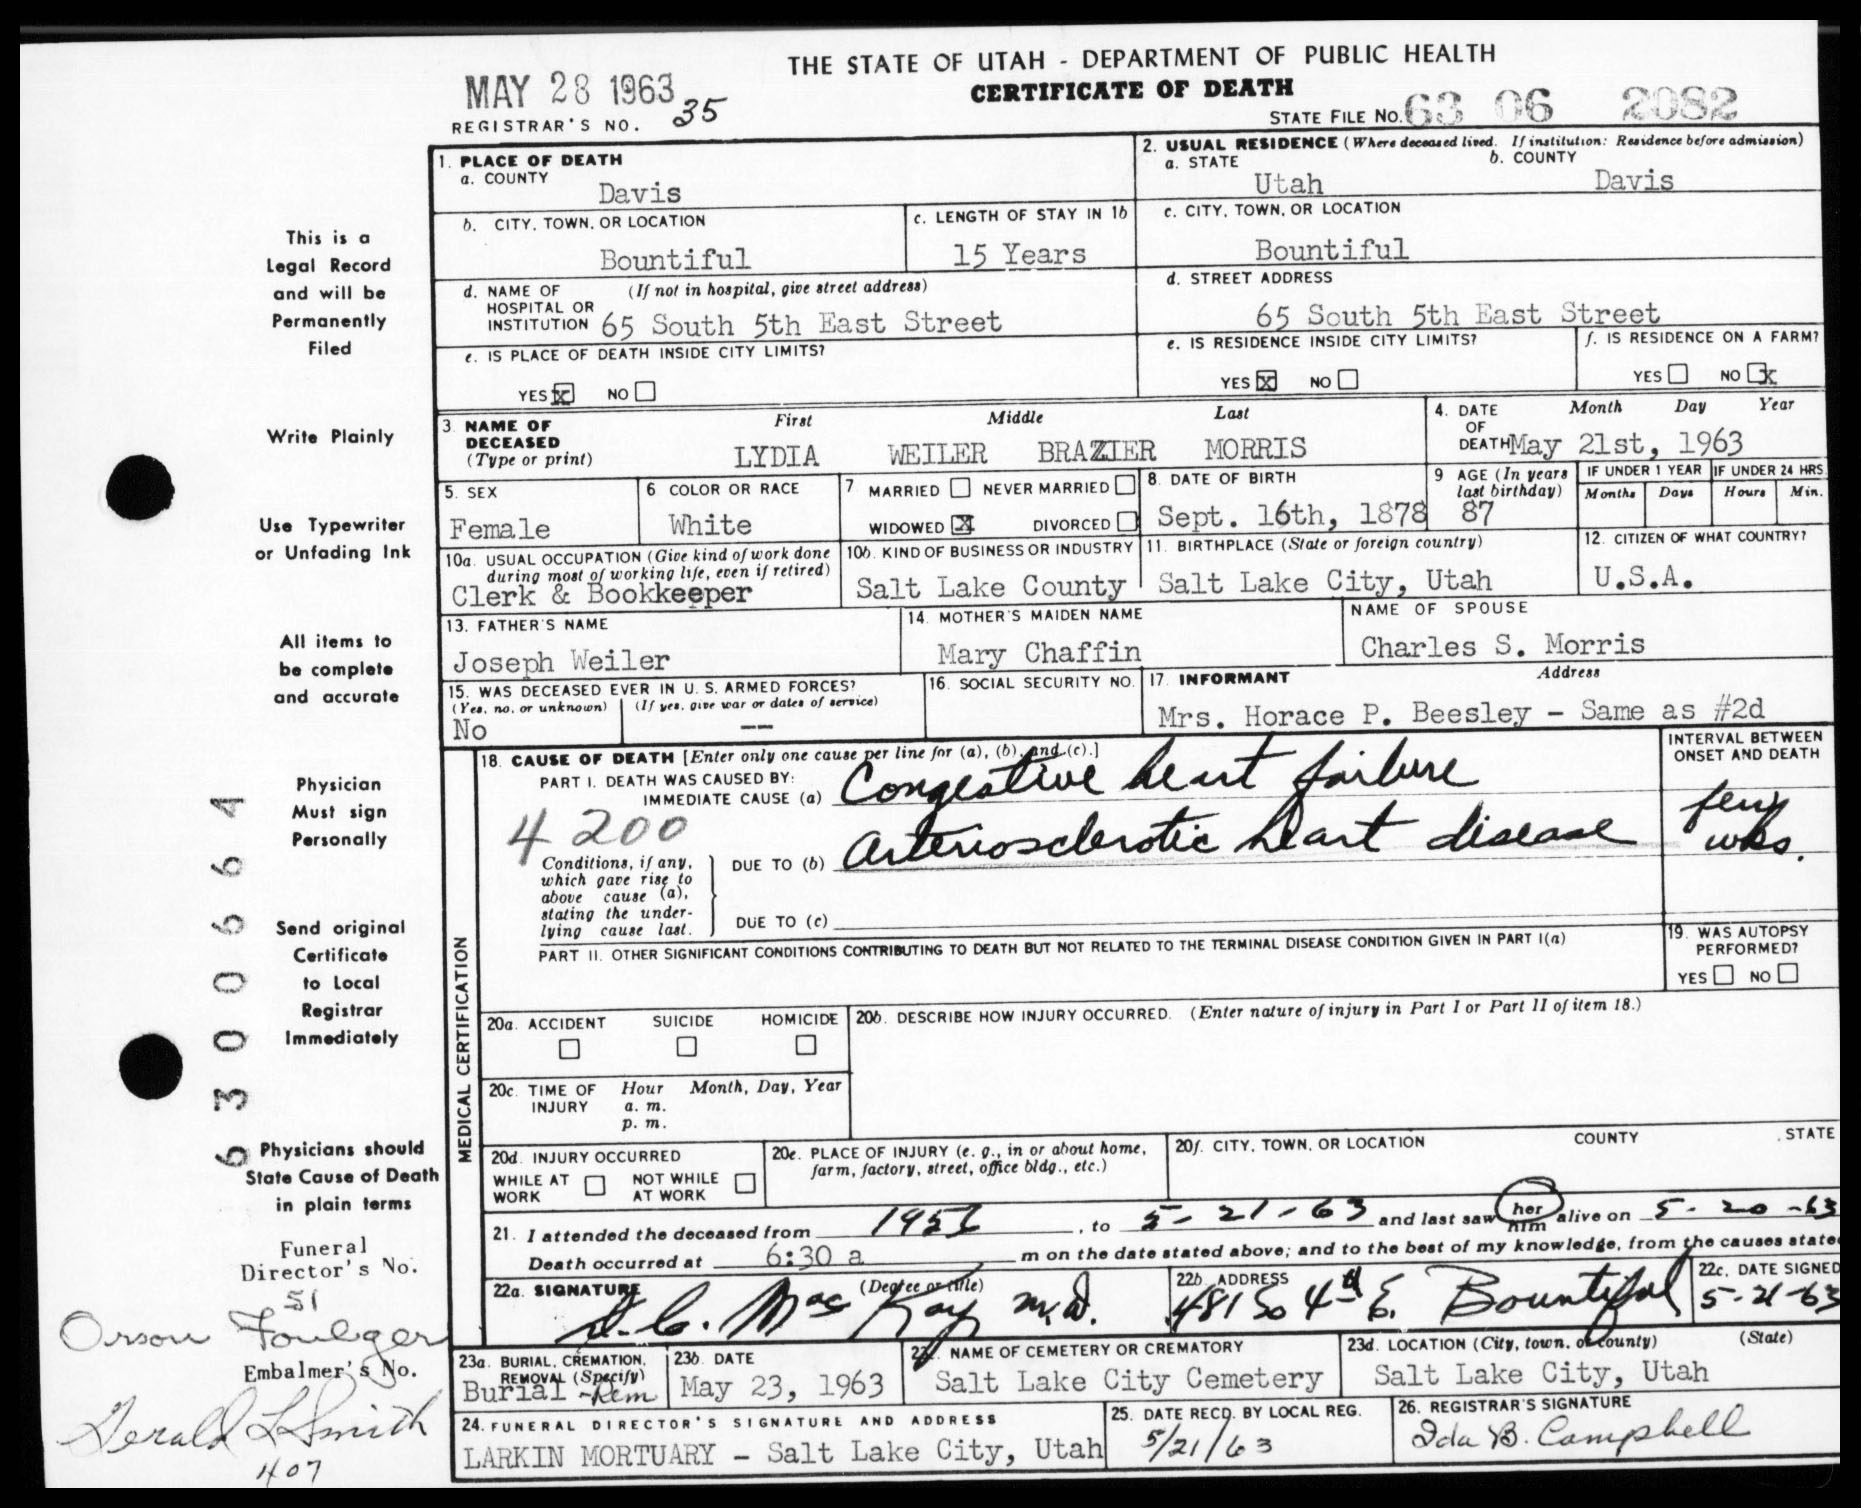 THE STATE OF UTAH - DEPARTMENT OF PUBLIC HEALTH
CERTIFICATE OF DEATH
MAY 28 1963
REGISTRAR'S NO. 35
STATE FILE NO. 63 06 2082
1. PLACE OF DEATH
a. COUNTY
Davis
2. USUAL RESIDENCE (Where deceased lived. If institution: Residence before admission)
a. STATE
Utah
b. COUNTY
Davis
b. CITY, TOWN, OR LOCATION
Bountiful
c. LENGTH OF STAY IN 1b
15 Years
c. CITY, TOWN, OR LOCATION
Bountiful
d. NAME OF (If not in hospital, give street address)
HOSPITAL OR
INSTITUTION 65 South 5th East Street
d. STREET ADDRESS
65 South 5th East Street
e. IS PLACE OF DEATH INSIDE CITY LIMITS?
YES X NO
e. IS RESIDENCE INSIDE CITY LIMITS?
YES X NO
f. IS RESIDENCE ON A FARM?
YES NO X
3. NAME OF
DECEASED
(Type or print)
First Middle Last
LYDIA WEILER BRAZIER MORRIS
4. DATE
OF
DEATH
Month Day Year
May 21st, 1963
5. SEX
Female
6 COLOR OR RACE
White
7 MARRIED NEVER MARRIED
WIDOWED X DIVORCED
8. DATE OF BIRTH
Sept. 16th, 1878
9 AGE (In years
last birthday)
87
IF UNDER 1 YEAR
Months Days
IF UNDER 24 HRS.
Hours Min.
10a. USUAL OCCUPATION (Give kind of work done
during most of working life, even if retired)
Clerk & Bookkeeper
10b. KIND OF BUSINESS OR INDUSTRY
Salt Lake County
11. BIRTHPLACE (State or foreign country)
Salt Lake City, Utah
12. CITIZEN OF WHAT COUNTRY?
U.S.A.
13. FATHER'S NAME
Joseph Weiler
14. MOTHER'S MAIDEN NAME
Mary Chaffin
NAME OF SPOUSE
Charles S. Morris
15. WAS DECEASED EVER IN U.S. ARMED FORCES?
(Yes, no, or unknown) (If yes, give war or dates of service)
No --
16. SOCIAL SECURITY NO.
17 INFORMANT Address
Mrs. Horace P. Beesley - Same as #2d
MEDICAL CERTIFICATION
18. CAUSE OF DEATH [Enter only one cause per line for (a), (b), and (c).]
PART I. DEATH WAS CAUSED BY:
IMMEDIATE CAUSE (a) Congestive heart failure
4200
Conditions, if any,
which gave rise to
above cause (a),
stating the under-
lying cause last.
DUE TO (b) Arteriosclerotic heart disease
DUE TO (c)
INTERVAL BETWEEN
ONSET AND DEATH
few
wks.
PART II. OTHER SIGNIFICANT CONDITIONS CONTRIBUTING TO DEATH BUT NOT RELATED TO THE TERMINAL DISEASE CONDITION GIVEN IN PART I(a)
19. WAS AUTOPSY
PERFORMED?
YES NO
20a. ACCIDENT SUICIDE HOMICIDE
20b. DESCRIBE HOW INJURY OCCURRED. (Enter nature of injury in Part I or Part II of item 18.)
20c. TIME OF Hour Month, Day, Year
INJURY a. m.
p. m.
20d. INJURY OCCURRED
WHILE AT NOT WHILE
WORK AT WORK
20e. PLACE OF INJURY (e. g., in or about home,
farm, factory, street, office bldg., etc.)
20f. CITY, TOWN, OR LOCATION COUNTY STATE
21. I attended the deceased from 1956, to 5-21-63 and last saw her him alive on 5-20-63
Death occurred at 6:30 a m on the date stated above; and to the best of my knowledge, from the causes state
22a. SIGNATURE (Degree or title)
D. C. MacKay M.D.
22b. ADDRESS
481 So 4th E. Bountiful
22c. DATE SIGNED
5-21-63
23a. BURIAL, CREMATION,
REMOVAL (Specify)
Burial -Rem
23b. DATE
May 23, 1963
23c. NAME OF CEMETERY OR CREMATORY
Salt Lake City Cemetery
23d. LOCATION (City, town, or county) (State)
Salt Lake City, Utah
24. FUNERAL DIRECTOR'S SIGNATURE AND ADDRESS
LARKIN MORTUARY - Salt Lake City, Utah
25. DATE RECD. BY LOCAL REG.
5/21/63
26. REGISTRAR'S SIGNATURE
Ida B. Campbell
This is a
Legal Record
and will be
Permanently
Filed
Write Plainly
Use Typewriter
or Unfading Ink
All items to
be complete
and accurate
Physician
Must sign
Personally
Send original
Certificate
to Local
Registrar
Immediately
Physicians should
State Cause of Death
in plain terms
6300664
Funeral
Director's No.
51
Orson Foulger
Embalmer's No.
Gerald L Smith
407